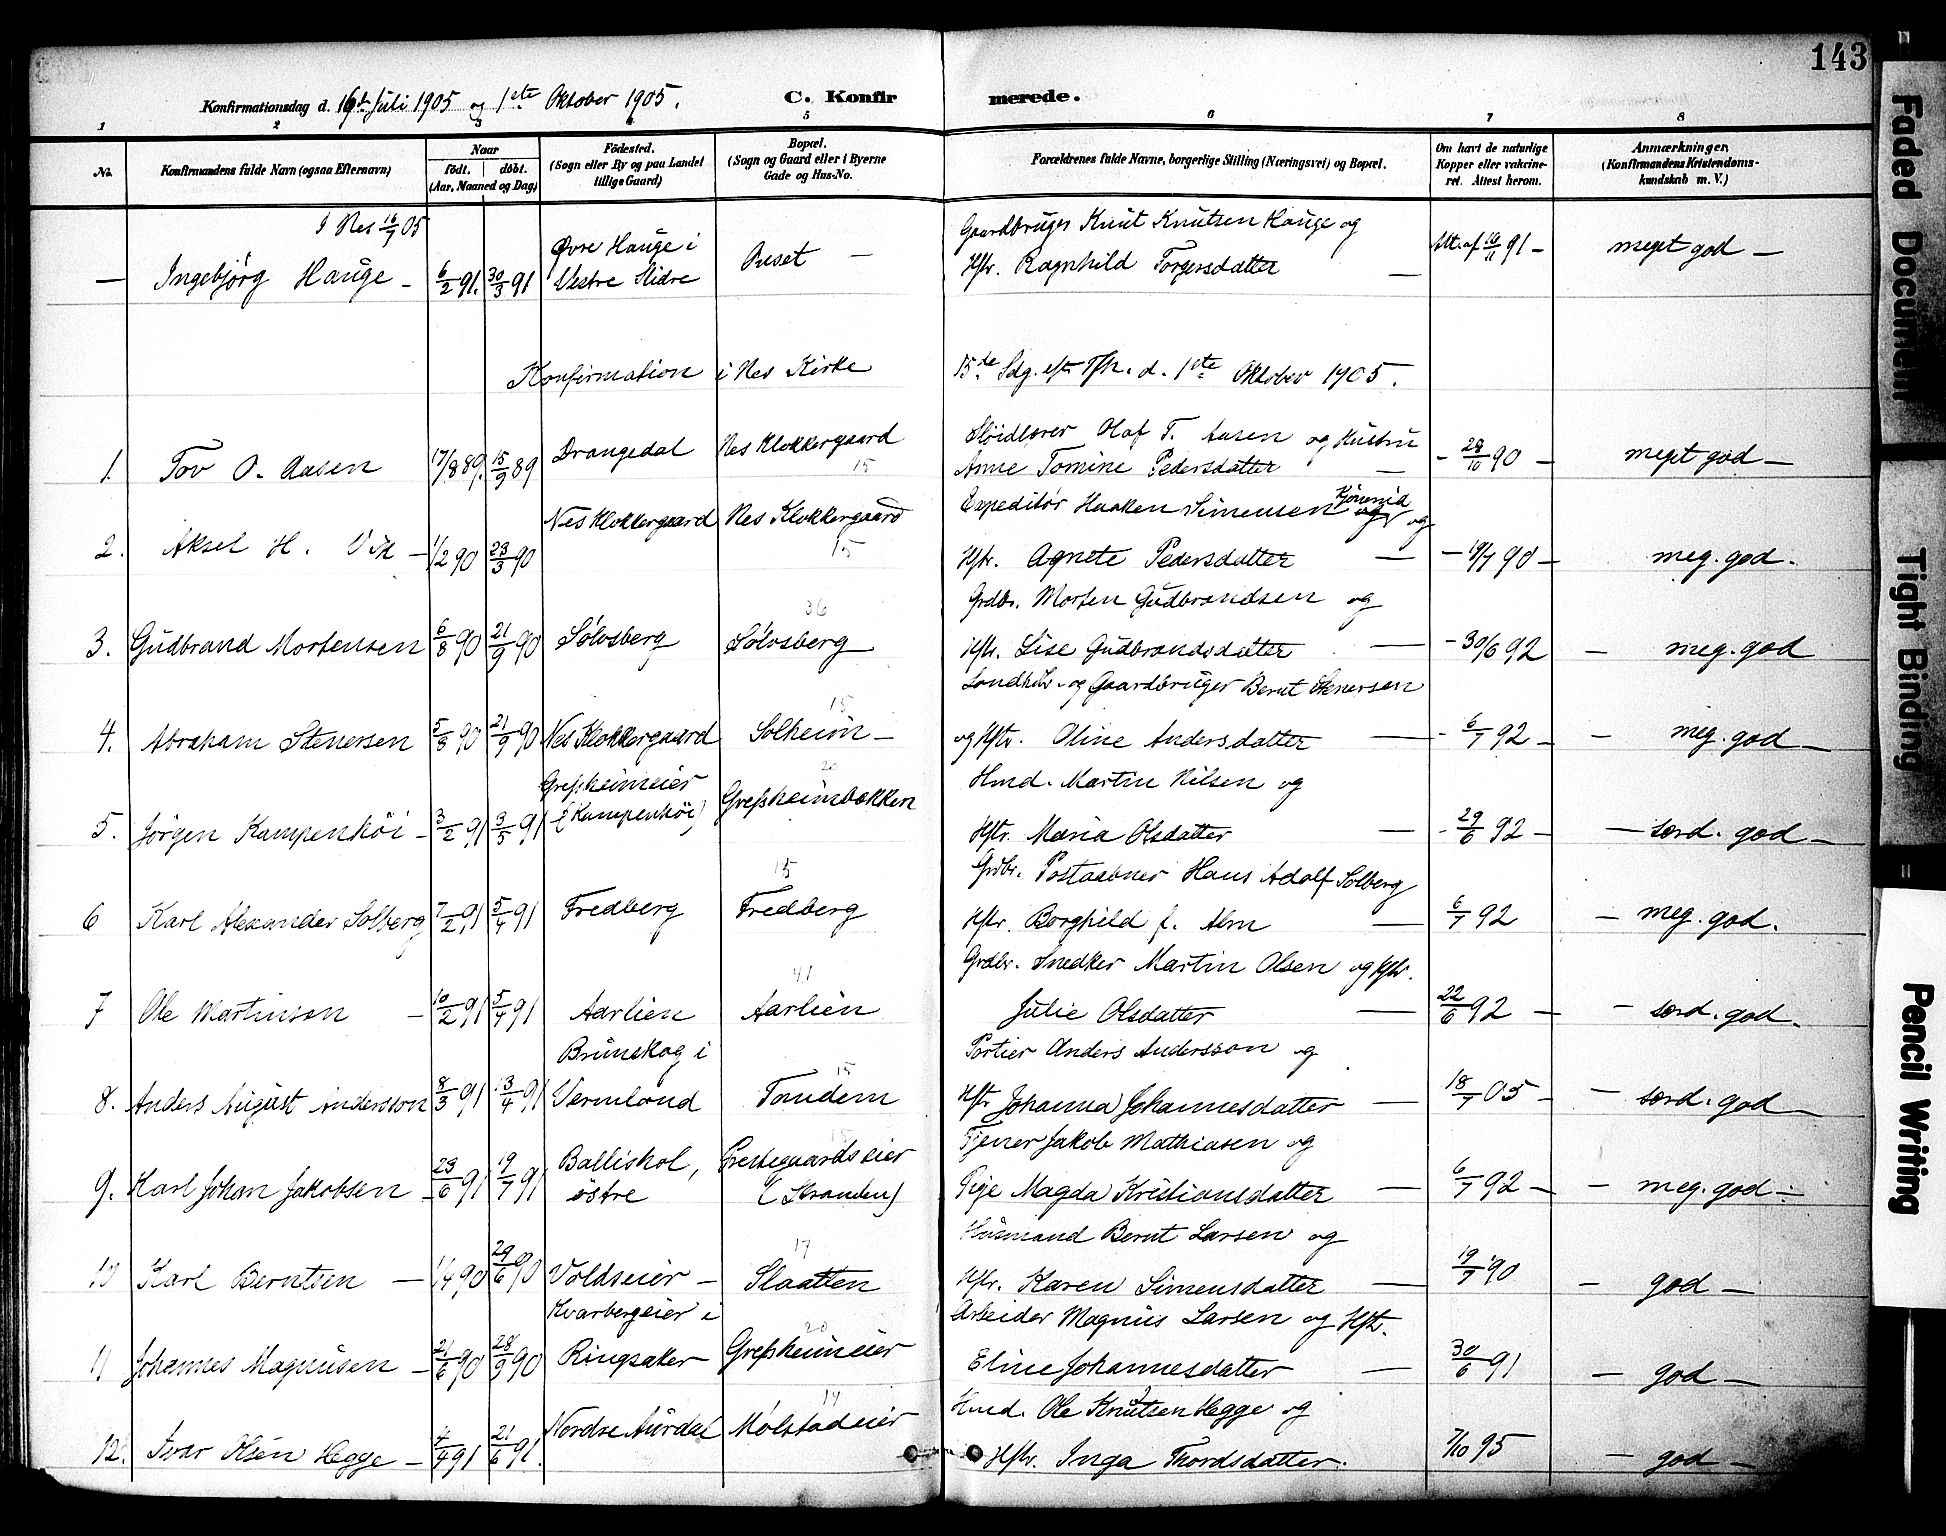 143
Konfirmationsdag d. 16de Juli 1905 og 1ste Oktober 1905.
C. Konfirmerede.
1 2 3 4 5 6 7 8
No.
Konfirmandens fulde Navn (ogsaa Efternavn)
Naar
født. døbt.
(Aar, Maaned og Dag)
Fødested.
(Sogn eller By og paa Landet
tillige Gaard)
Bopæl.
(Sogn og Gaard eller i Byerne
Gade og Hus-No.
Forældrenes fulde Navne, borgerlige Stilling (Næringsvei) og Bopæl.
Om havt de naturlige
Kopper eller vakcine-
ret. Attest herom.
Anmærkninger.
(Konfirmandens Kristendoms-
kundskab m. V.)
I Nes 16/7 05
— Ingebjørg Hauge - 6/2 91. 30/3 91
Øvre Hauge i
Vestre Slidre
—
Gaardbruger Knut Knutsen Hauge og
Hstr. Ragnhild Torgersdatter —
Att. af 16/11 91 - meget god —
Konfirmation i Nes Kirke
15de Sdg. eft. Tfh. d. 1ste Oktober 1905.
1. Tov O. Aasen 17/8 89. 15/9 89 Drangedal Nes Klokkergaard 15
Sløidlærer Olaf T. Aasen og Hustru
Anne Tomine Pedersdatter —
- 28/10 90 - meget god —
2. Aksel H. Vik - 1/2 90 23/3 90 Nes Klokkergaard Nes Klokkergaard 15
Expeditør Haaken Simensen og
Hstr. Agnete Pedersdatter —
- 19/7 90 - meg. god.
3. Gudbrand Mortensen 6/8 90 21/9 90 Sølvsberg Sølvsberg 36
Grdbr. Morten Gudbrandsen og
Hstr. Lise Gudbrandsdatter —
- 30/6 92 - meg. god
4. Abraham Stenersen 5/8 90 21/9 90 Nes Klokkergaard Solheim - 15
Landh. og Gaardbruger Bernt Stenersen
og Hstr. Oline Andersdatter —
- 6/7 92 - - meg. god —
5. Jørgen Kampenhöi - 3/2 91 3/5 91
Gresheimeier
(Kampenhöi)
Gresheimbakken 20
Hmd. Martin Nilsen og
Hstr. Maria Olsdatter —
- 29/6 92 - — særd. god —
6 Karl Alexander Solberg 7/2 91 5/4 91 Fredberg Fredberg 15
Grdbr. Postaabner Hans Adolf Solberg
Hstr. Borghild f. Alm —
6/7 92 - meg. god.
7 Ole Martinsen - 10/2 91 5/4 91 Aarlien Aarlien 41
Grdbr. Snedker Martin Olsen og Hstr.
Julie Olsdatter —
22/6 92 - - særd. god.
8. Anders August Andersson 8/3 91 13/4 91
Brunskog i
Vermland
Tandem 15
Portier Anders Andersson og
Hstr Johanna Johannesdatter —
18/7 05 - - særd. god —
9. Karl Johan Jakobsen - 23/6 91 19/7 91
Balliskol,
østre
Prestegaardseier
(Stranden)
Tjener Jakob Mathiasen og
Pige Magda Kristiansdatter —
6/7 92 - - meg. god -
10 Karl Berntsen — 1/4 90 29/6 90 Voldseier - Slaatten 17
Husmand Bernt Larsen og
Hstr. Karen Simensdatter —
19/7 90 - god —
11 Johannes Magnusen - 21/6 90 28/9 90
Kvarbergeier i
Ringsaker
Gresheimeier 20
Arbeider Magnus Larsen og Hstr.
Eline Johannesdatter —
30/6 91 - god —
12. Ivar Olsen Hegge - 4/4 91 21/6 91. Nordre Aurdal Mølstadeier 14
Hmd. Ole Knutsen Hegge og
Hstr. Inga Thordsdatter.
7/10 95 - god —
Faded Document
Tight Binding
Pencil Writing